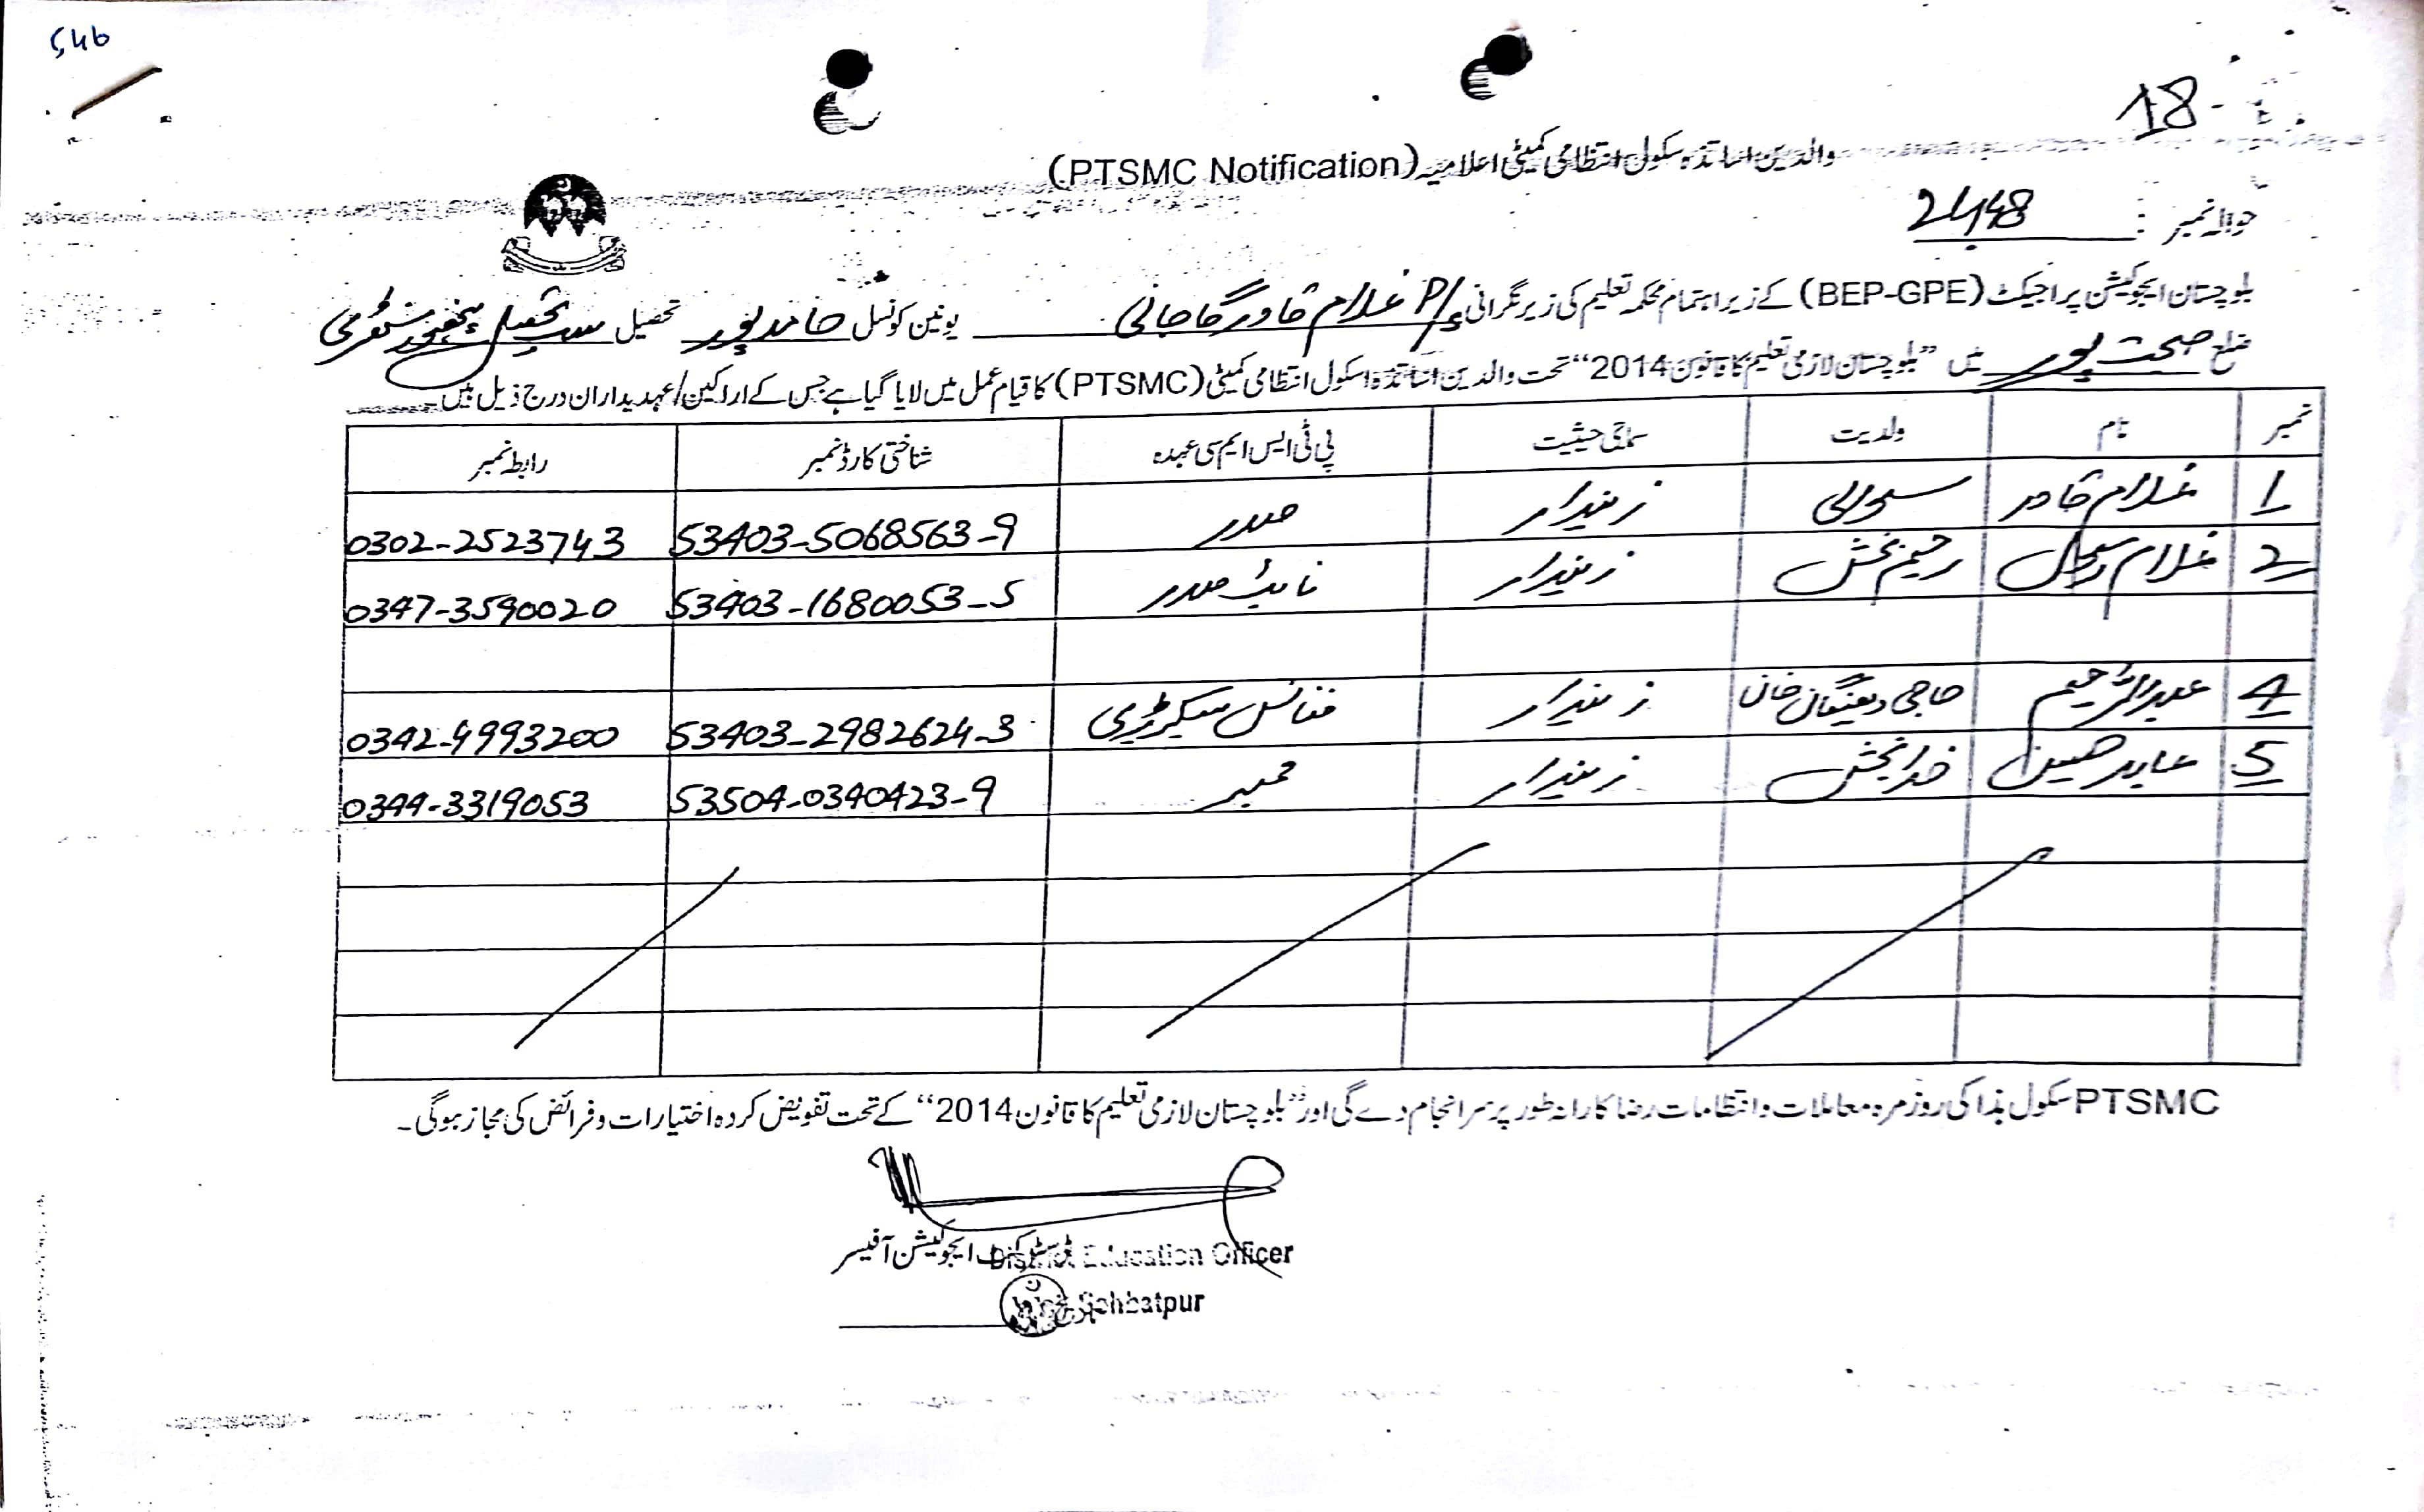 546
18-
والدین اساتذہ سکول انتظامی کمیٹی اعلامیہ (PTSMC Notification)
حوالہ نمبر : 2448
بلوچستان ایجوکیشن پراجیکٹ (BEP-GPE) کے زیر اہتمام محکمہ تعلیم کی زیر نگرانی غلام قادر گاجانی یونین کونسل حامد پور تحصیل سب تحصیل
ضلع صحبت پور میں ”بلوچستان لازمی تعلیم کا قانون 2014“ تحت والدین اساتذہ اسکول انتظامی کمیٹی (PTSMC) کا قیام عمل میں لایا گیا ہے جس کے اراکین/عہدیداران درج ذیل ہیں
نمبر نام ولدیت سماجی حیثیت پی ٹی ایس ایم سی عہدہ شناختی کارڈ نمبر رابطہ نمبر
1 غلام قادر زمیندار صدر 53403-5068563-9 0302-2523743
2 غلام رسول رحیم بخش زمیندار نائب صدر 53403-1680053-5 0347-3590020
4 عبدالرحیم حاجی خان زمیندار فنانس سیکریٹری 53403-2982624-3 0342-4993200
5 عابد حسین خدا بخش زمیندار ممبر 53504-0340423-9 0344-3319053
PTSMC سکول ہذا کی روزمرہ معاملات و انتظامات رضا کارانہ طور پر سر انجام دے گی اور ”بلوچستان لازمی تعلیم کا قانون 2014“ کے تحت تفویض کردہ اختیارات و فرائض کی مجاز ہوگی۔
ڈسٹرکٹ ایجوکیشن آفیسر
District Education Officer
Sohbatpur